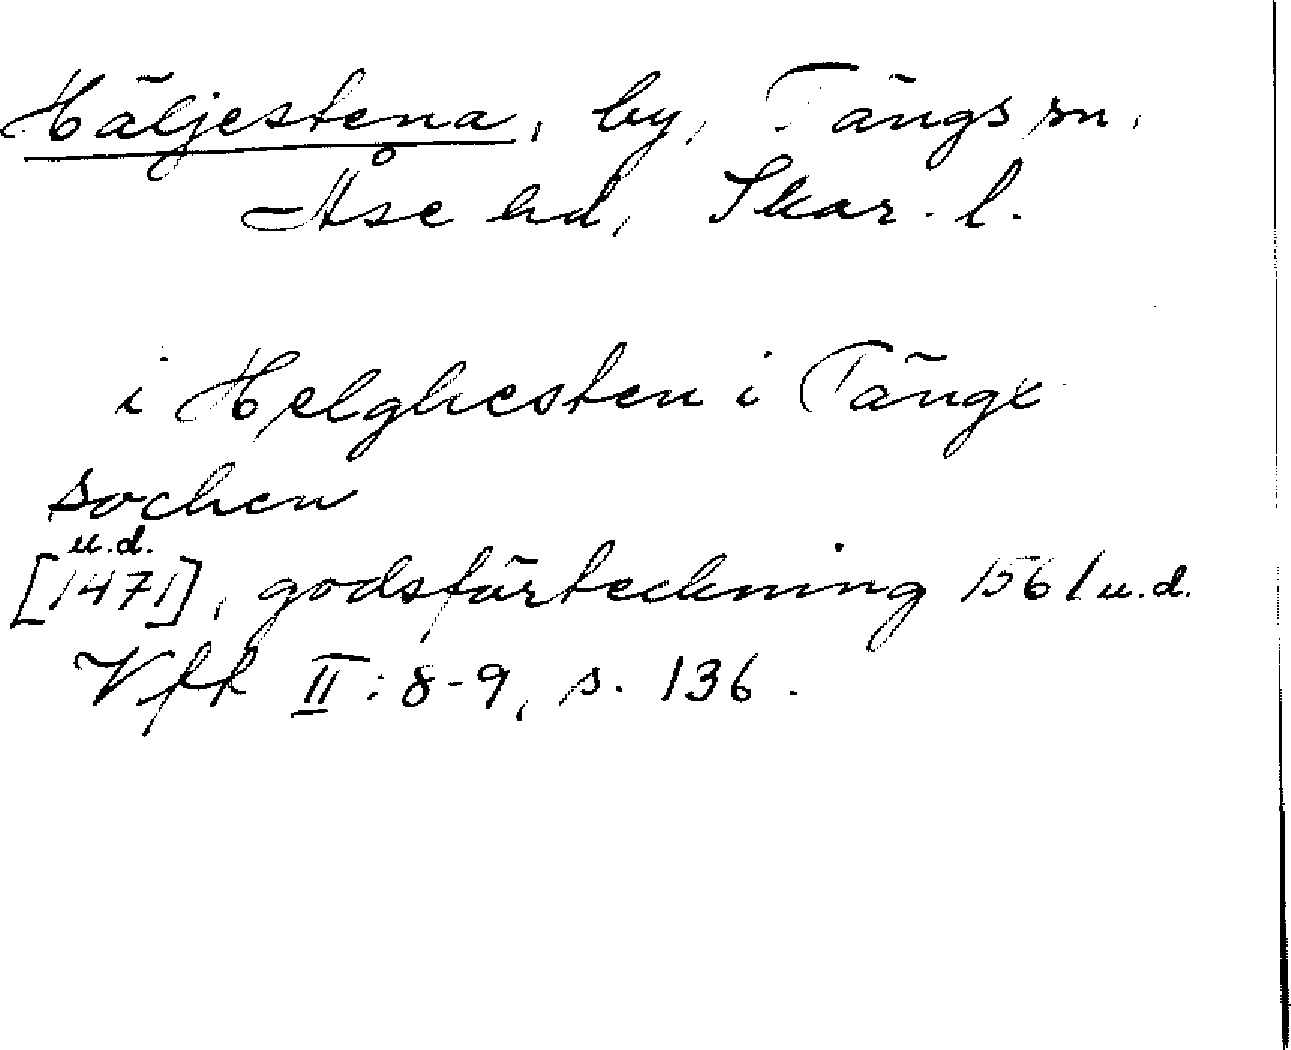 Häljestena, by, Tängs sn,
Åse hd, Skar. l.
i Helghesten i Tängx
sochen
u.d.
[1471], godsförteckning 1561 u.d.
Vff II: 8-9, s. 136.